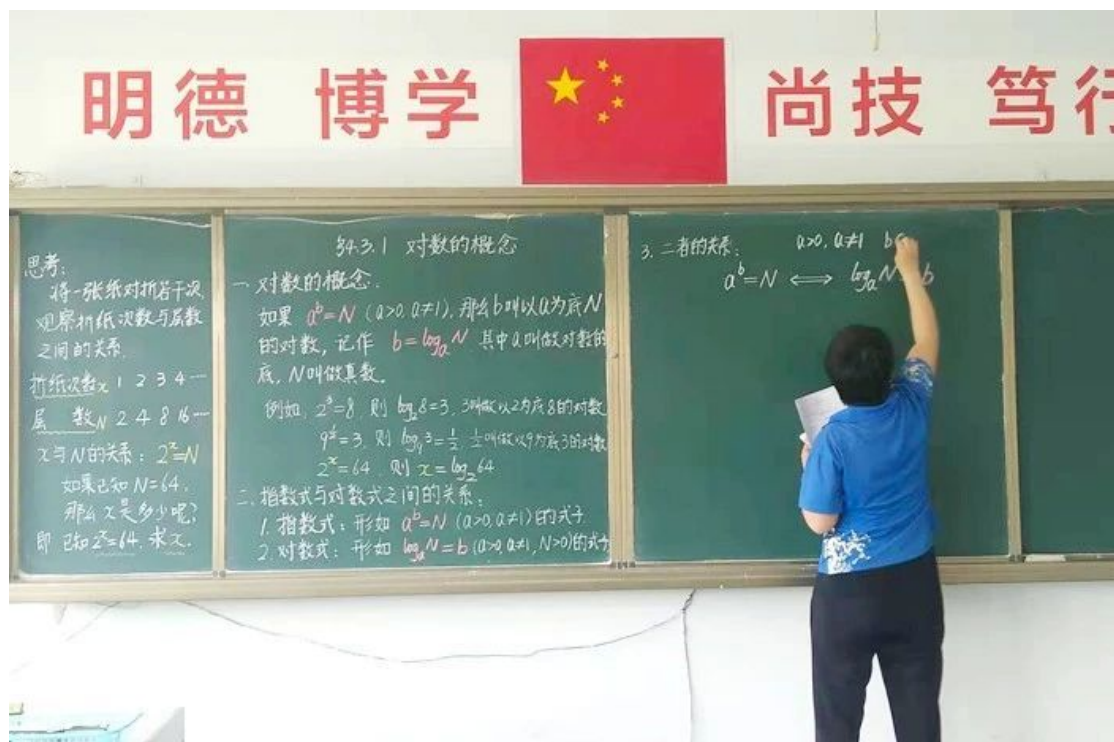 明德 博学 尚技 笃行
思考:
将一张纸对折若干次
观察折纸次数与层数
之间的关系.
折纸次数x 1 2 3 4 …
层 数N 2 4 8 16 …
x与N的关系: 2ˣ=N
如果已知N=64,
那么x是多少呢?
即 已知2ˣ=64, 求x.
§4.3.1 对数的概念
一 对数的概念.
如果 aᵇ=N (a>0, a≠1), 那么b叫以a为底N
的对数, 记作 b=logₐN 其中a叫做对数的
底, N叫做真数.
例如, 2³=8, 则 log₂8=3, 3叫做以2为底8的对数
9^½=3, 则 log₉3=½, ½叫做以9为底3的对数
2ˣ=64, 则 x=log₂64
二. 指数式与对数式之间的关系:
1. 指数式: 形如 aᵇ=N (a>0, a≠1)的式子
2. 对数式: 形如 logₐN=b (a>0, a≠1, N>0)的式子
3. 二者的关系: a>0, a≠1 b
aᵇ=N ⟺ logₐN b